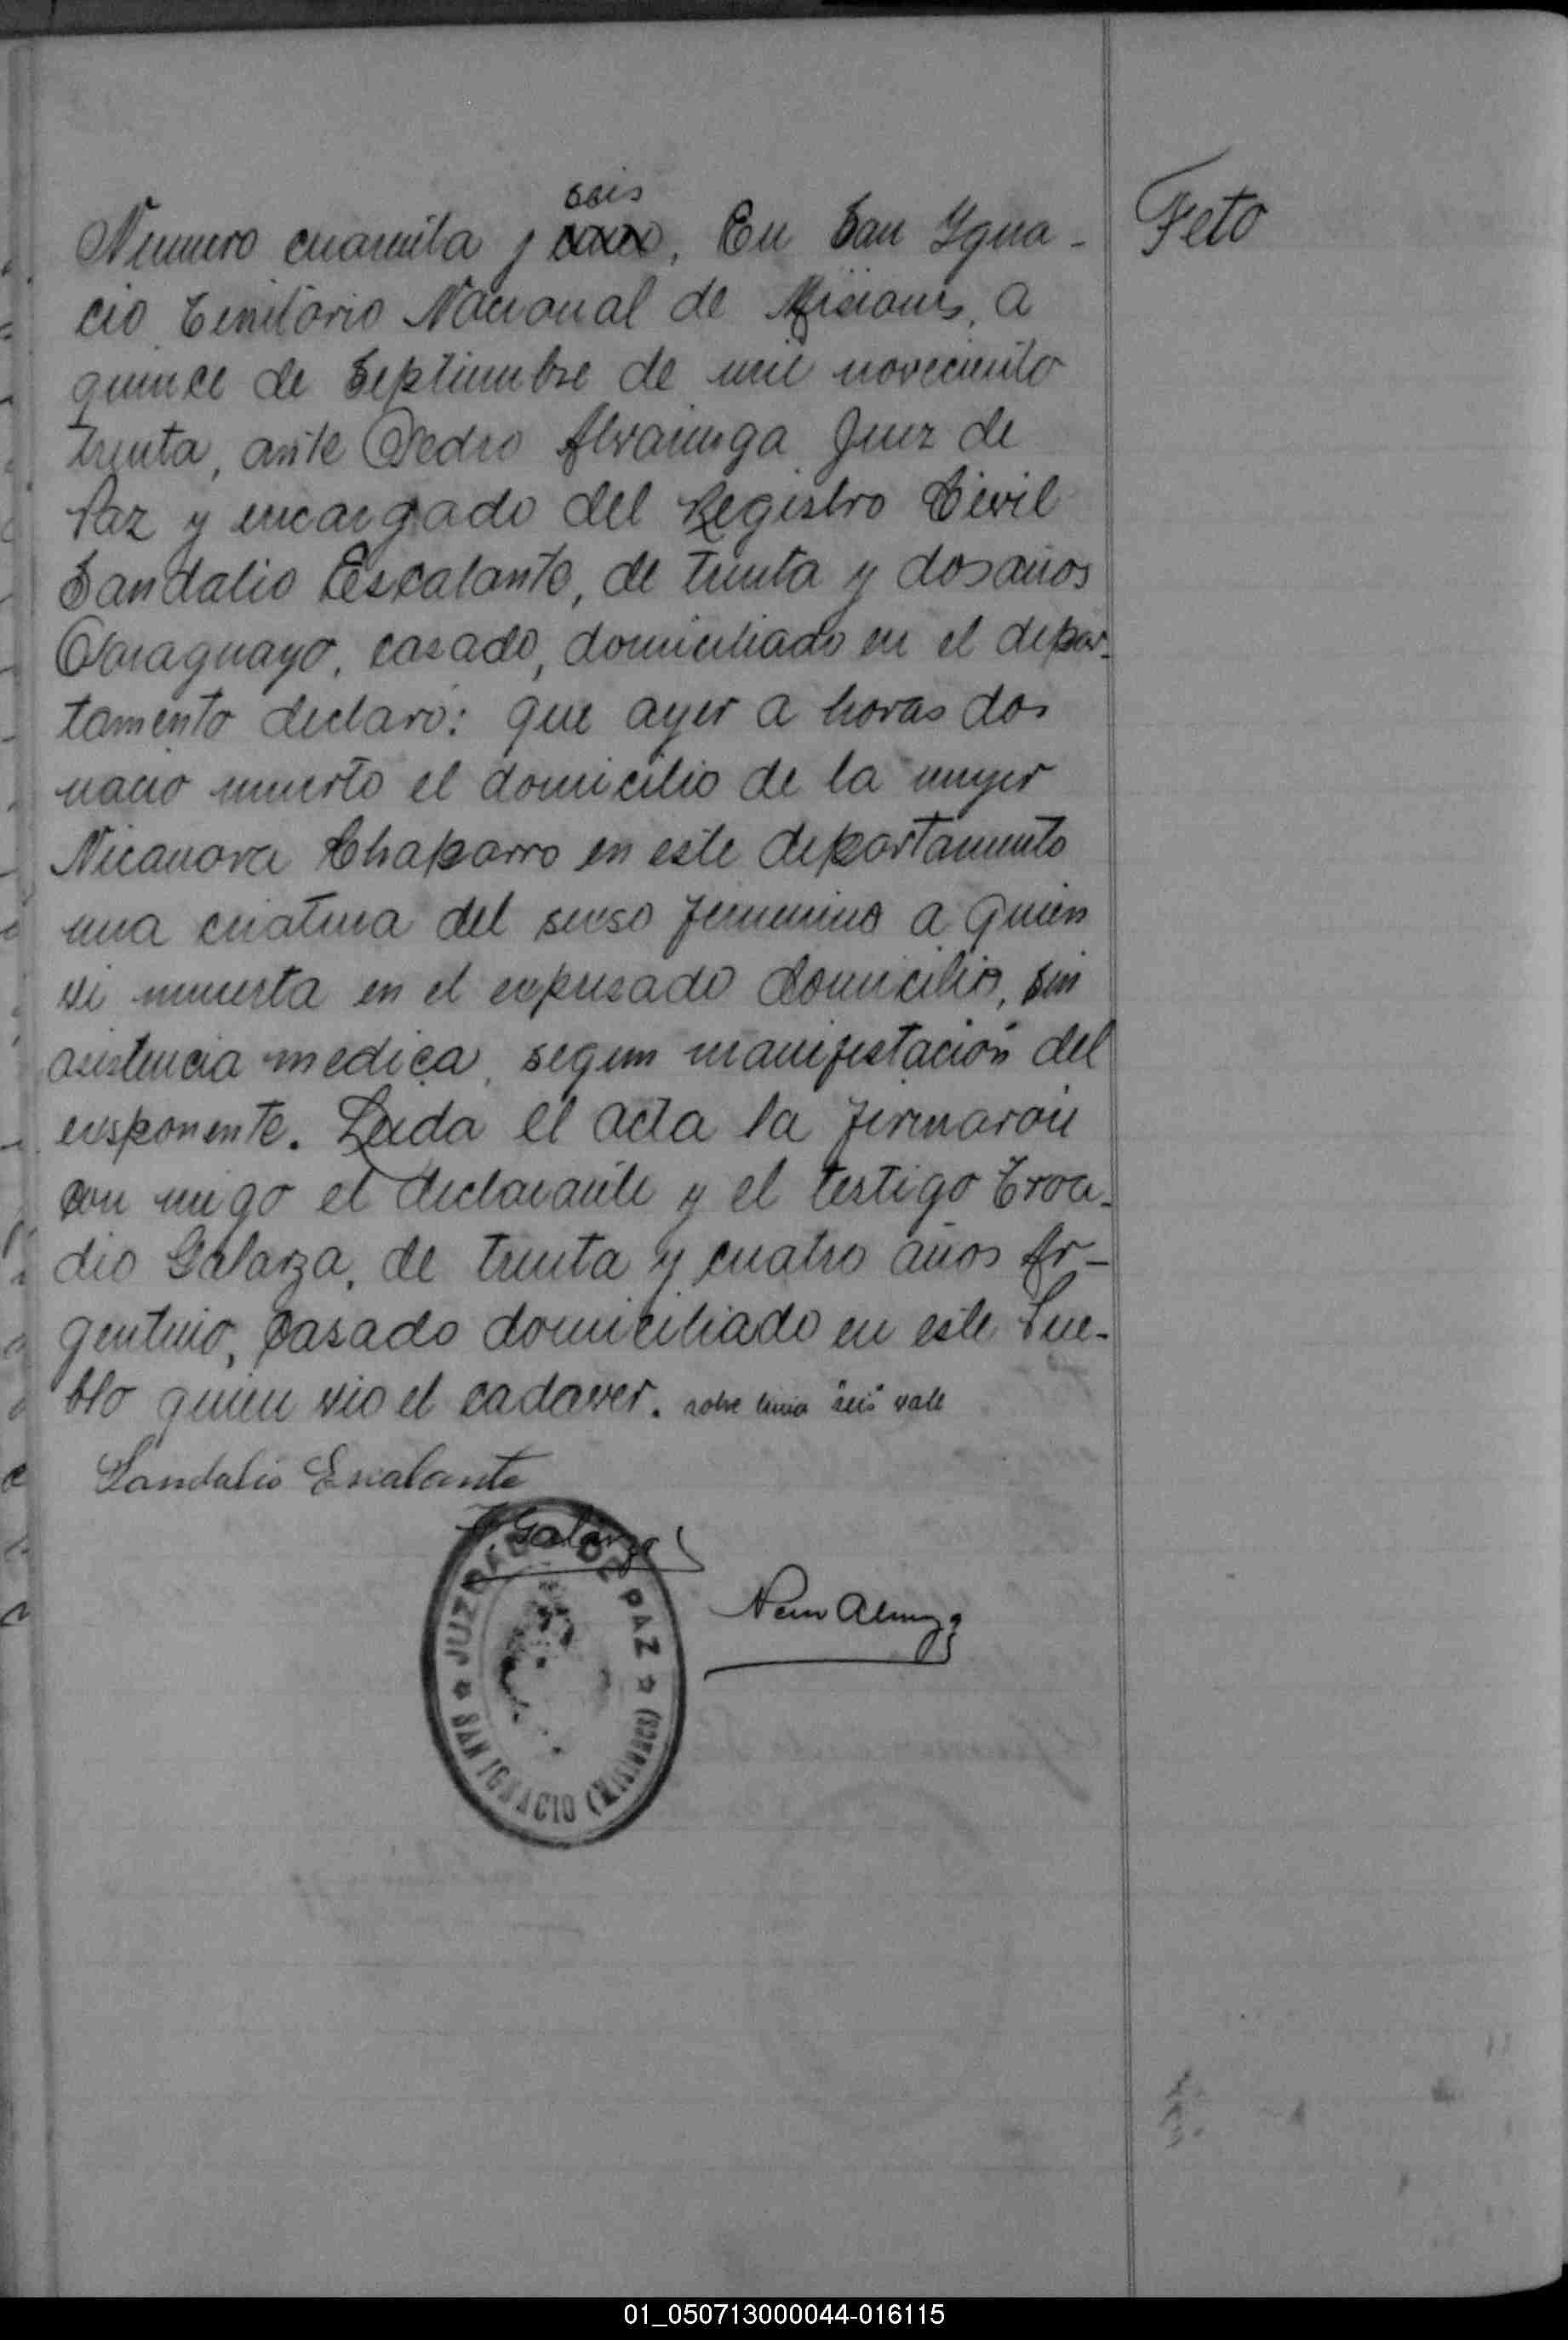 seis
Numero cuarenta y cinco, En San Ygna-
cio Territorio Nacional de Misiones, a
quince de Septiembre de mil noveciento
treinta, ante Pedro Alvarenga Juez de
Paz y encargado del Registro Civil
Sandalio Escalante, de treinta y dos años
Paraguayo, casado, domiciliado en el depar-
tamento declaró: que ayer a horas dos
nacio muerto el domicilio de la mujer
Nicanora Chaparro en este departamento
una criatura del sexso femenino a quien
vi muerta en el expresado domicilio, sin
asistencia medica, segun manifestación del
exsponente. Leida el acta la firmaron
con migo el declarante y el testigo Troca-
dio Galarza, de treinta y cuatro años Ar-
gentino, casado domiciliado en este Pue-
blo quien vio el cadaver. sobre linia "seis" vale
Sandalio Escalante
T. Galarza
JUZGADO DE PAZ
SAN IGNACIO (MISIONES)
Feto
01_050713000044-016115